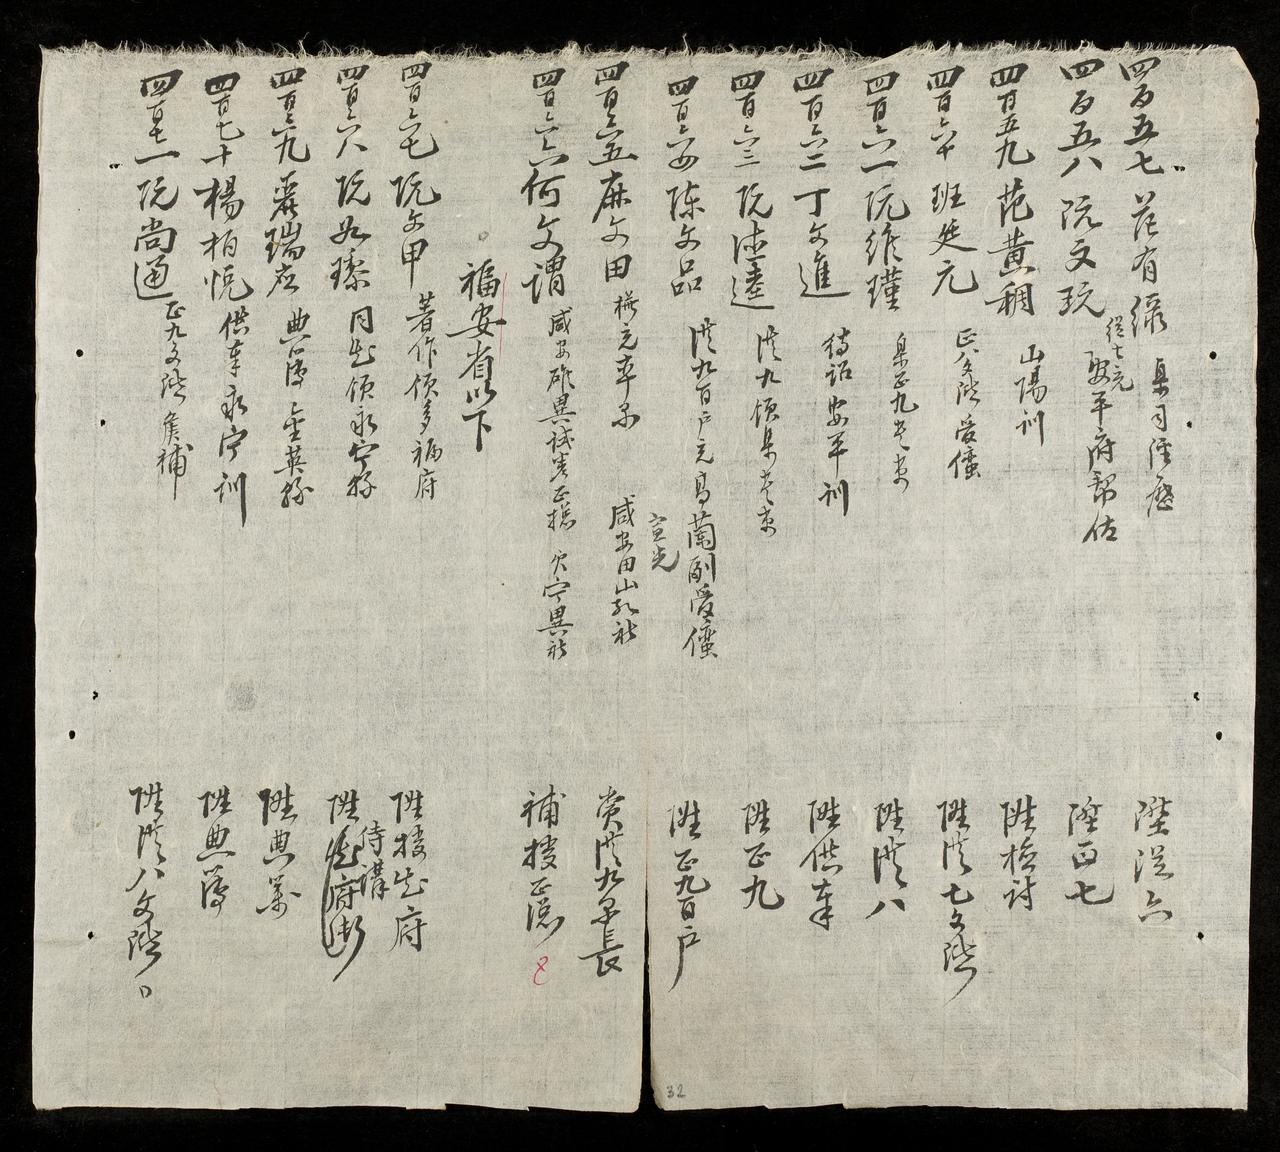 四百五七 范有 臬司經歷 陞從六
四百五八 阮文玩 從七充 安平府幫佐 陞正七
四百五九 范黃稠 山陽訓 陞檢討
四百六十 班廷元 正八文階受儅 陞從七文階
四百六一 阮維瑾 臬正九 陞從八
四百六二 丁文進 待詔安平訓 陞供奉
四百六三 阮達 從九領臬 陞正九
四百六四 陳文品 從九百戶充高蘭副受儅 宣光 陞正九百戶
四百六五 麻文田 充率 咸安田山社 賞從九 長
四百六六 何文謂 咸安 異試差正總 異社 補授正總 8
福安省以下
四百六七 阮文甲 著作領多福府 陞授知府
四百六八 阮如瑧 同知領永寧縣 陞侍講 知府銜
四百六九 裴瑞 典簿 金英縣 陞典籍
四百七十 楊柏悅 供奉永寧訓 陞典簿
四百七一 阮尚通 正九文階候補 陞從八文階
32